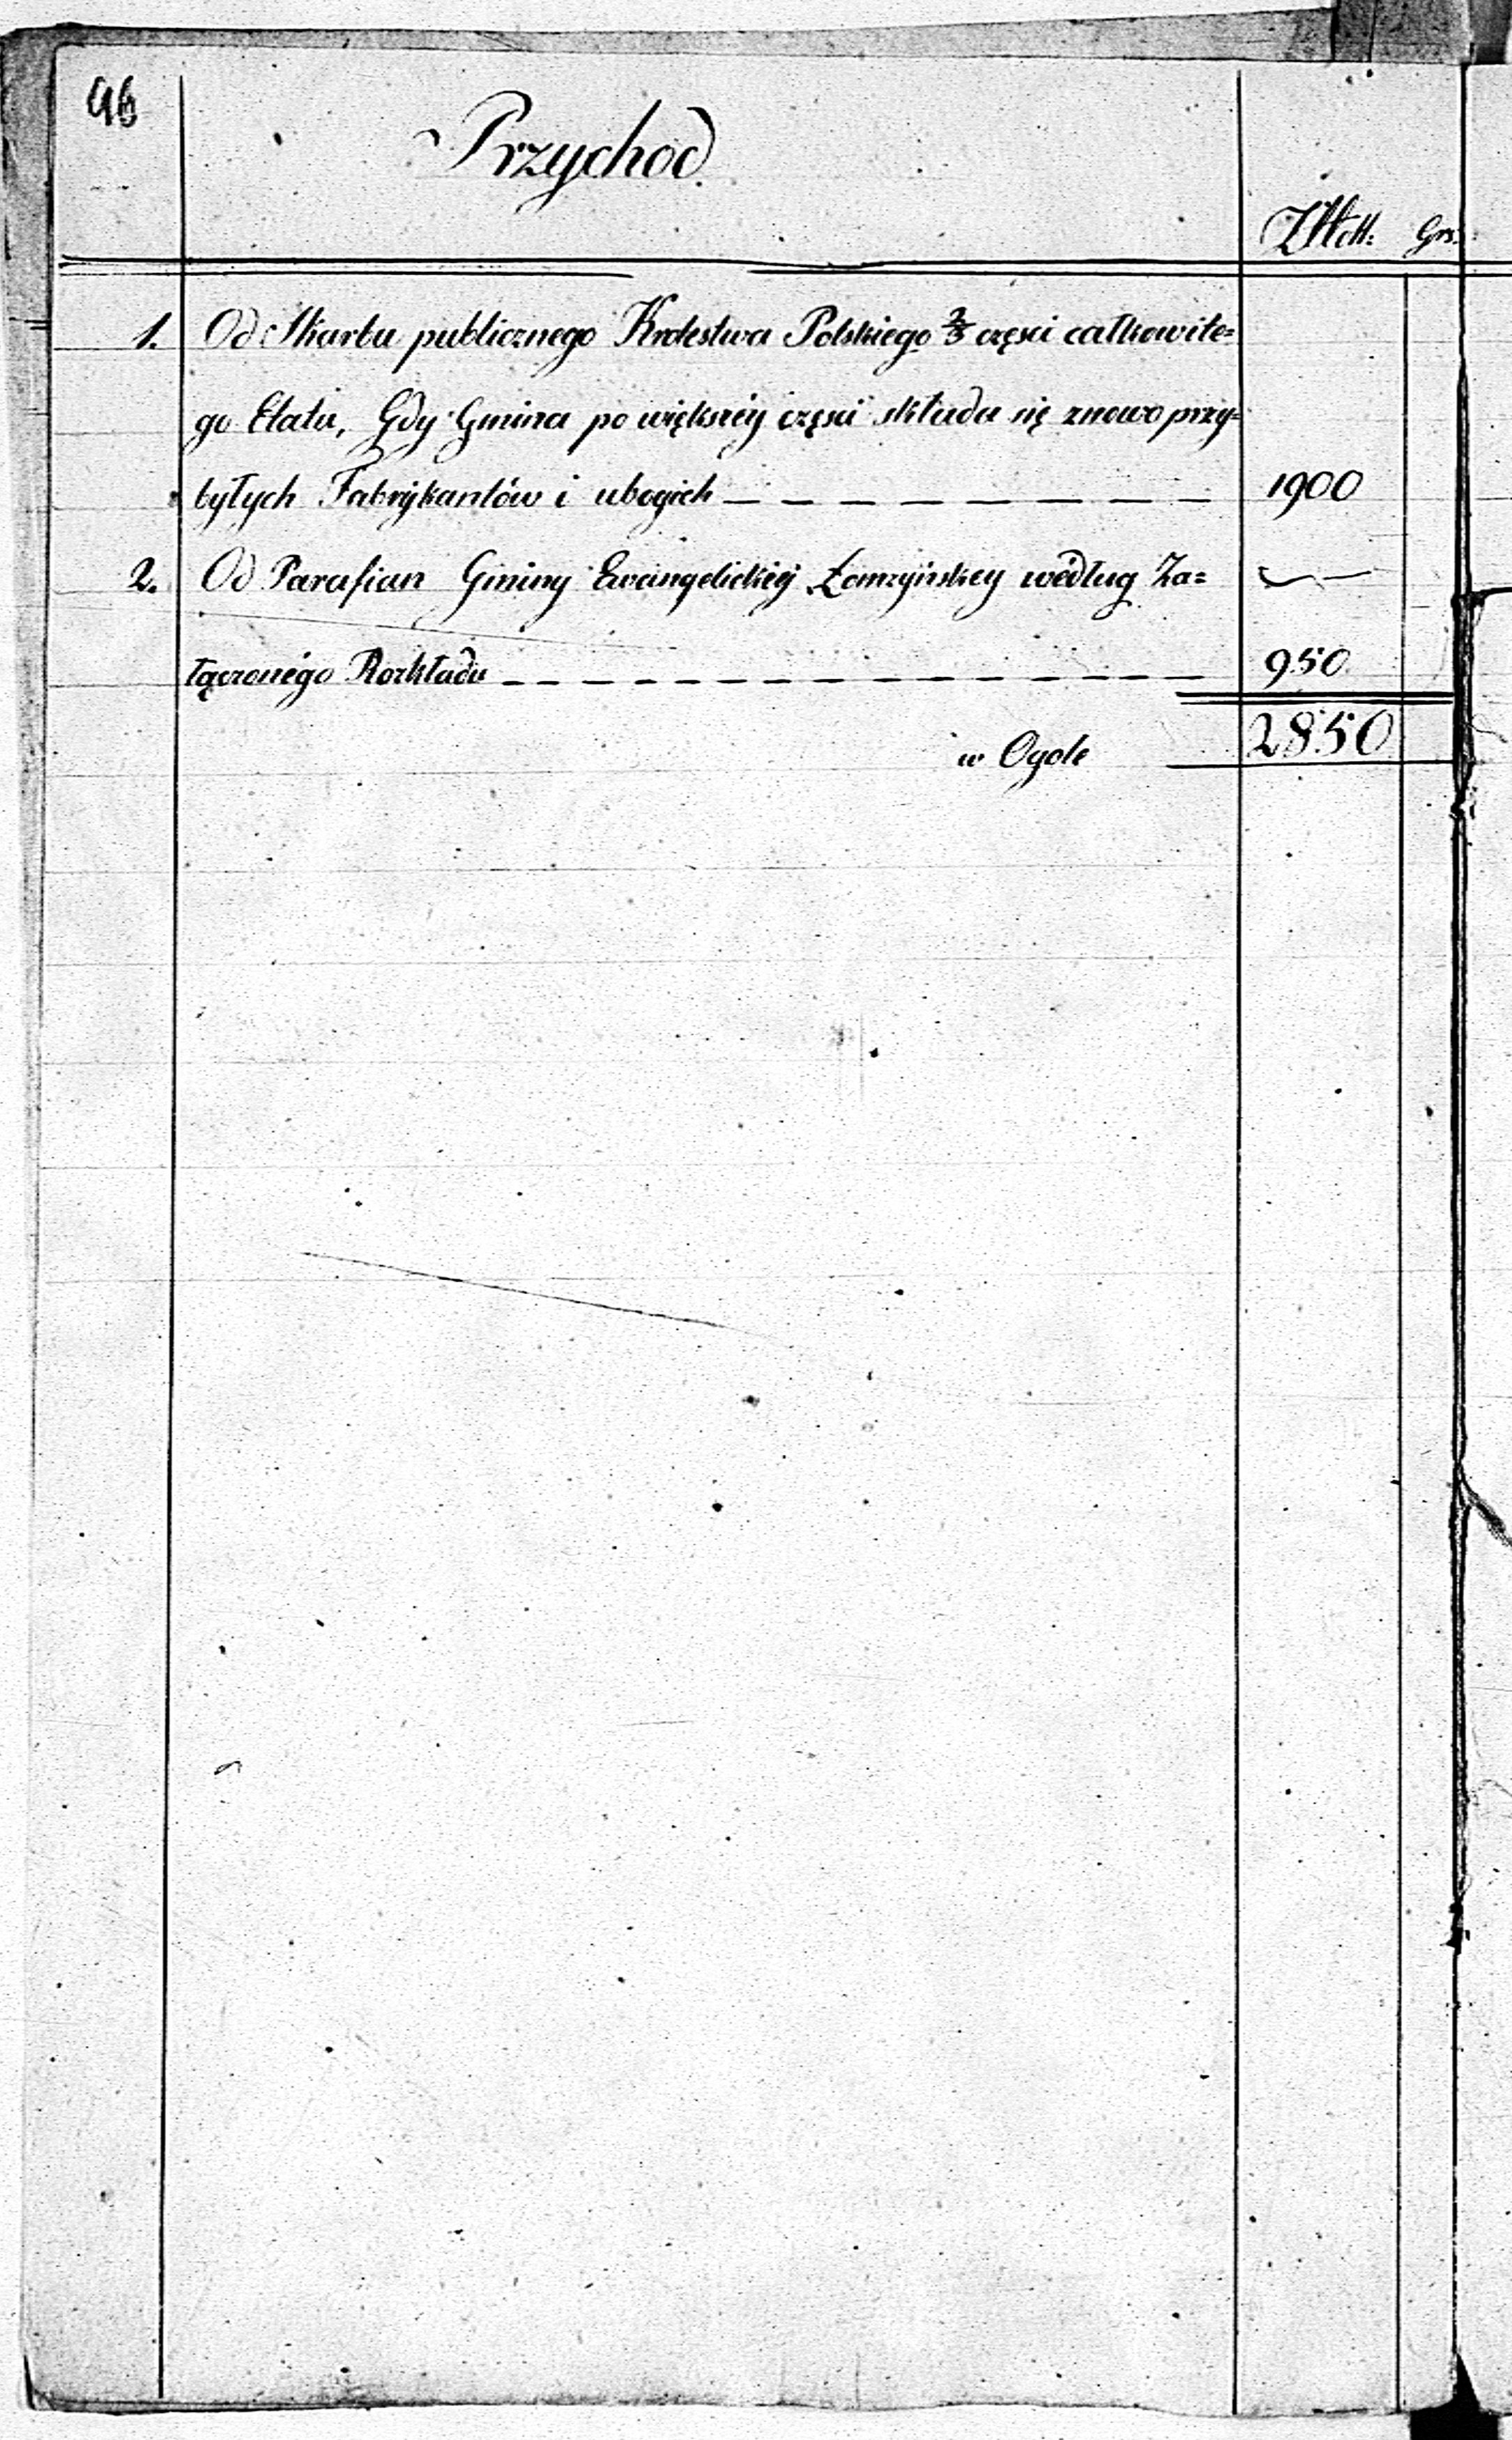 96
Przychod
ZPtt: Grs:
1. Od Skarbu publicznego Krolestwa Polskiego 2/3 częsci całkowite=
go Etatu, Gdy Gmina po większéy częsci składa się znowo przy=
byłych Fabrykantów i ubogich 1900
2. Od Parafian Gminy Ewangelickiéy Łomzyńskey według Za= —
łączonégo Rozkładu 950
w Ogole 2850